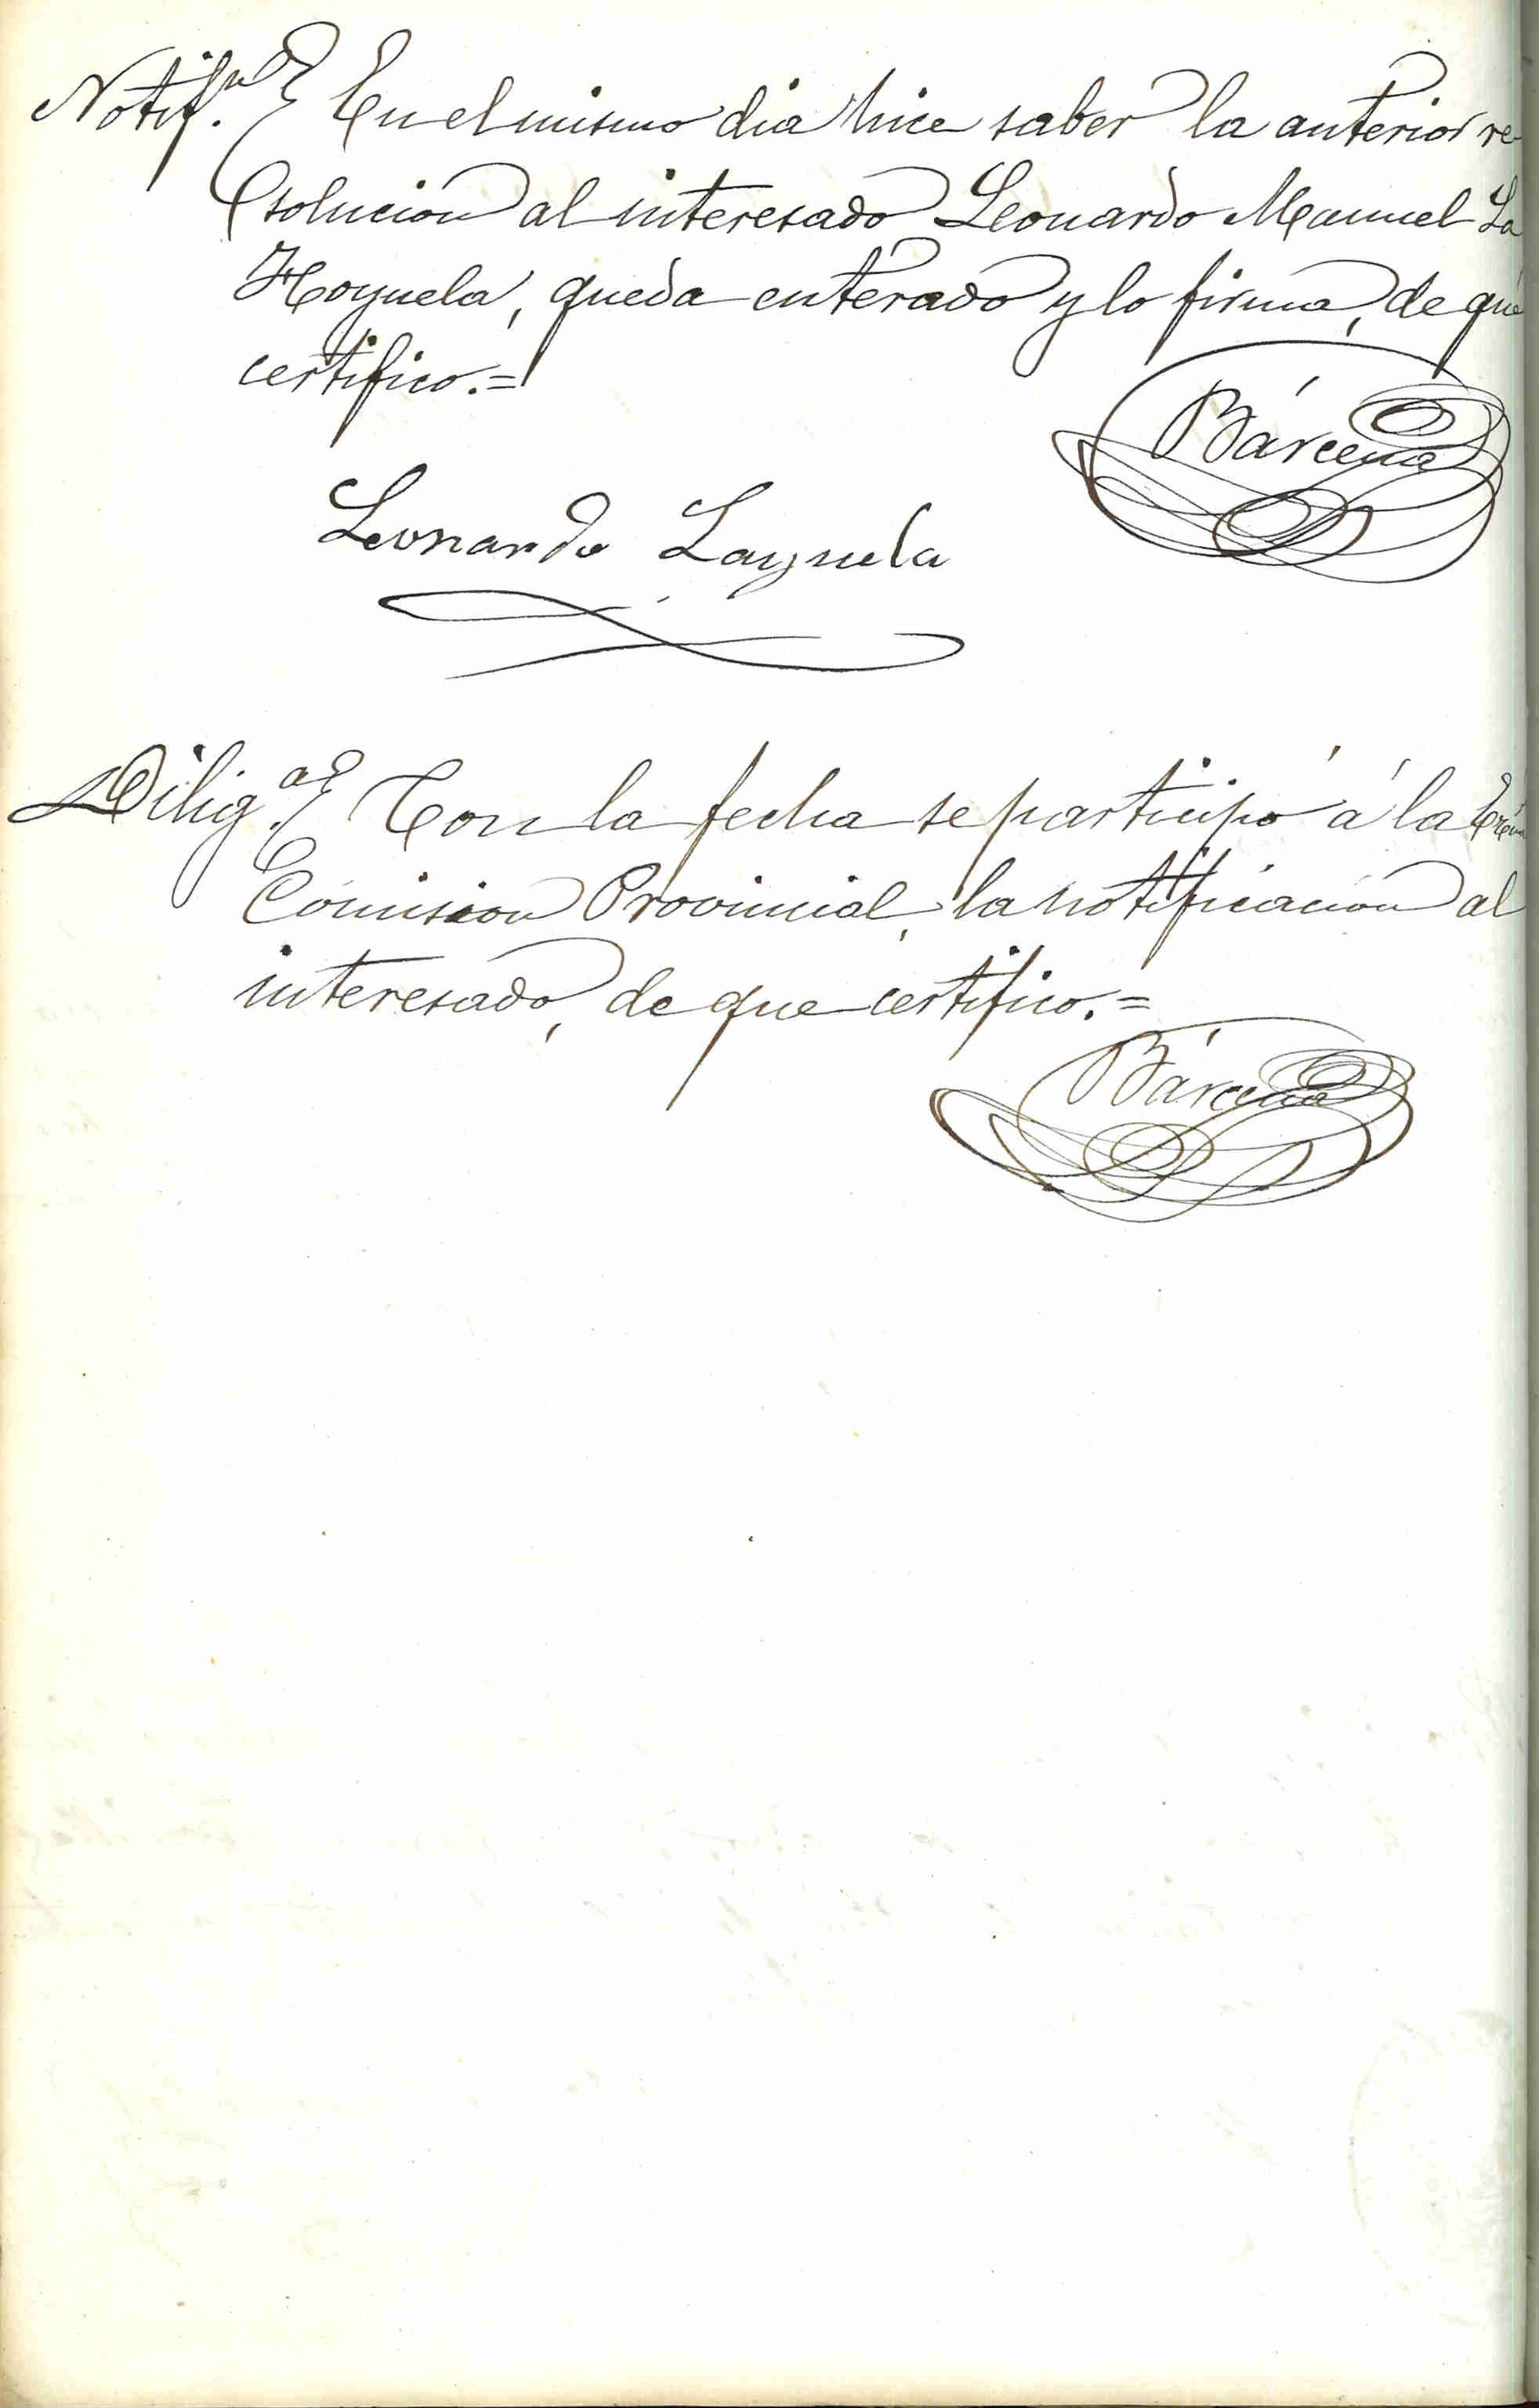 Notif.n En el mismo dia hice saber la anterior re-
solucion al interesado Leonardo Manuel La
Hoyuela, queda enterado y lo firma, de que
certifico.=
Bárcena
Leonardo Layuela
Dilig.a Con la fecha se participó á la
Comision Provincial, la notificacion al
interesado, de que certifico.=
Bárcena